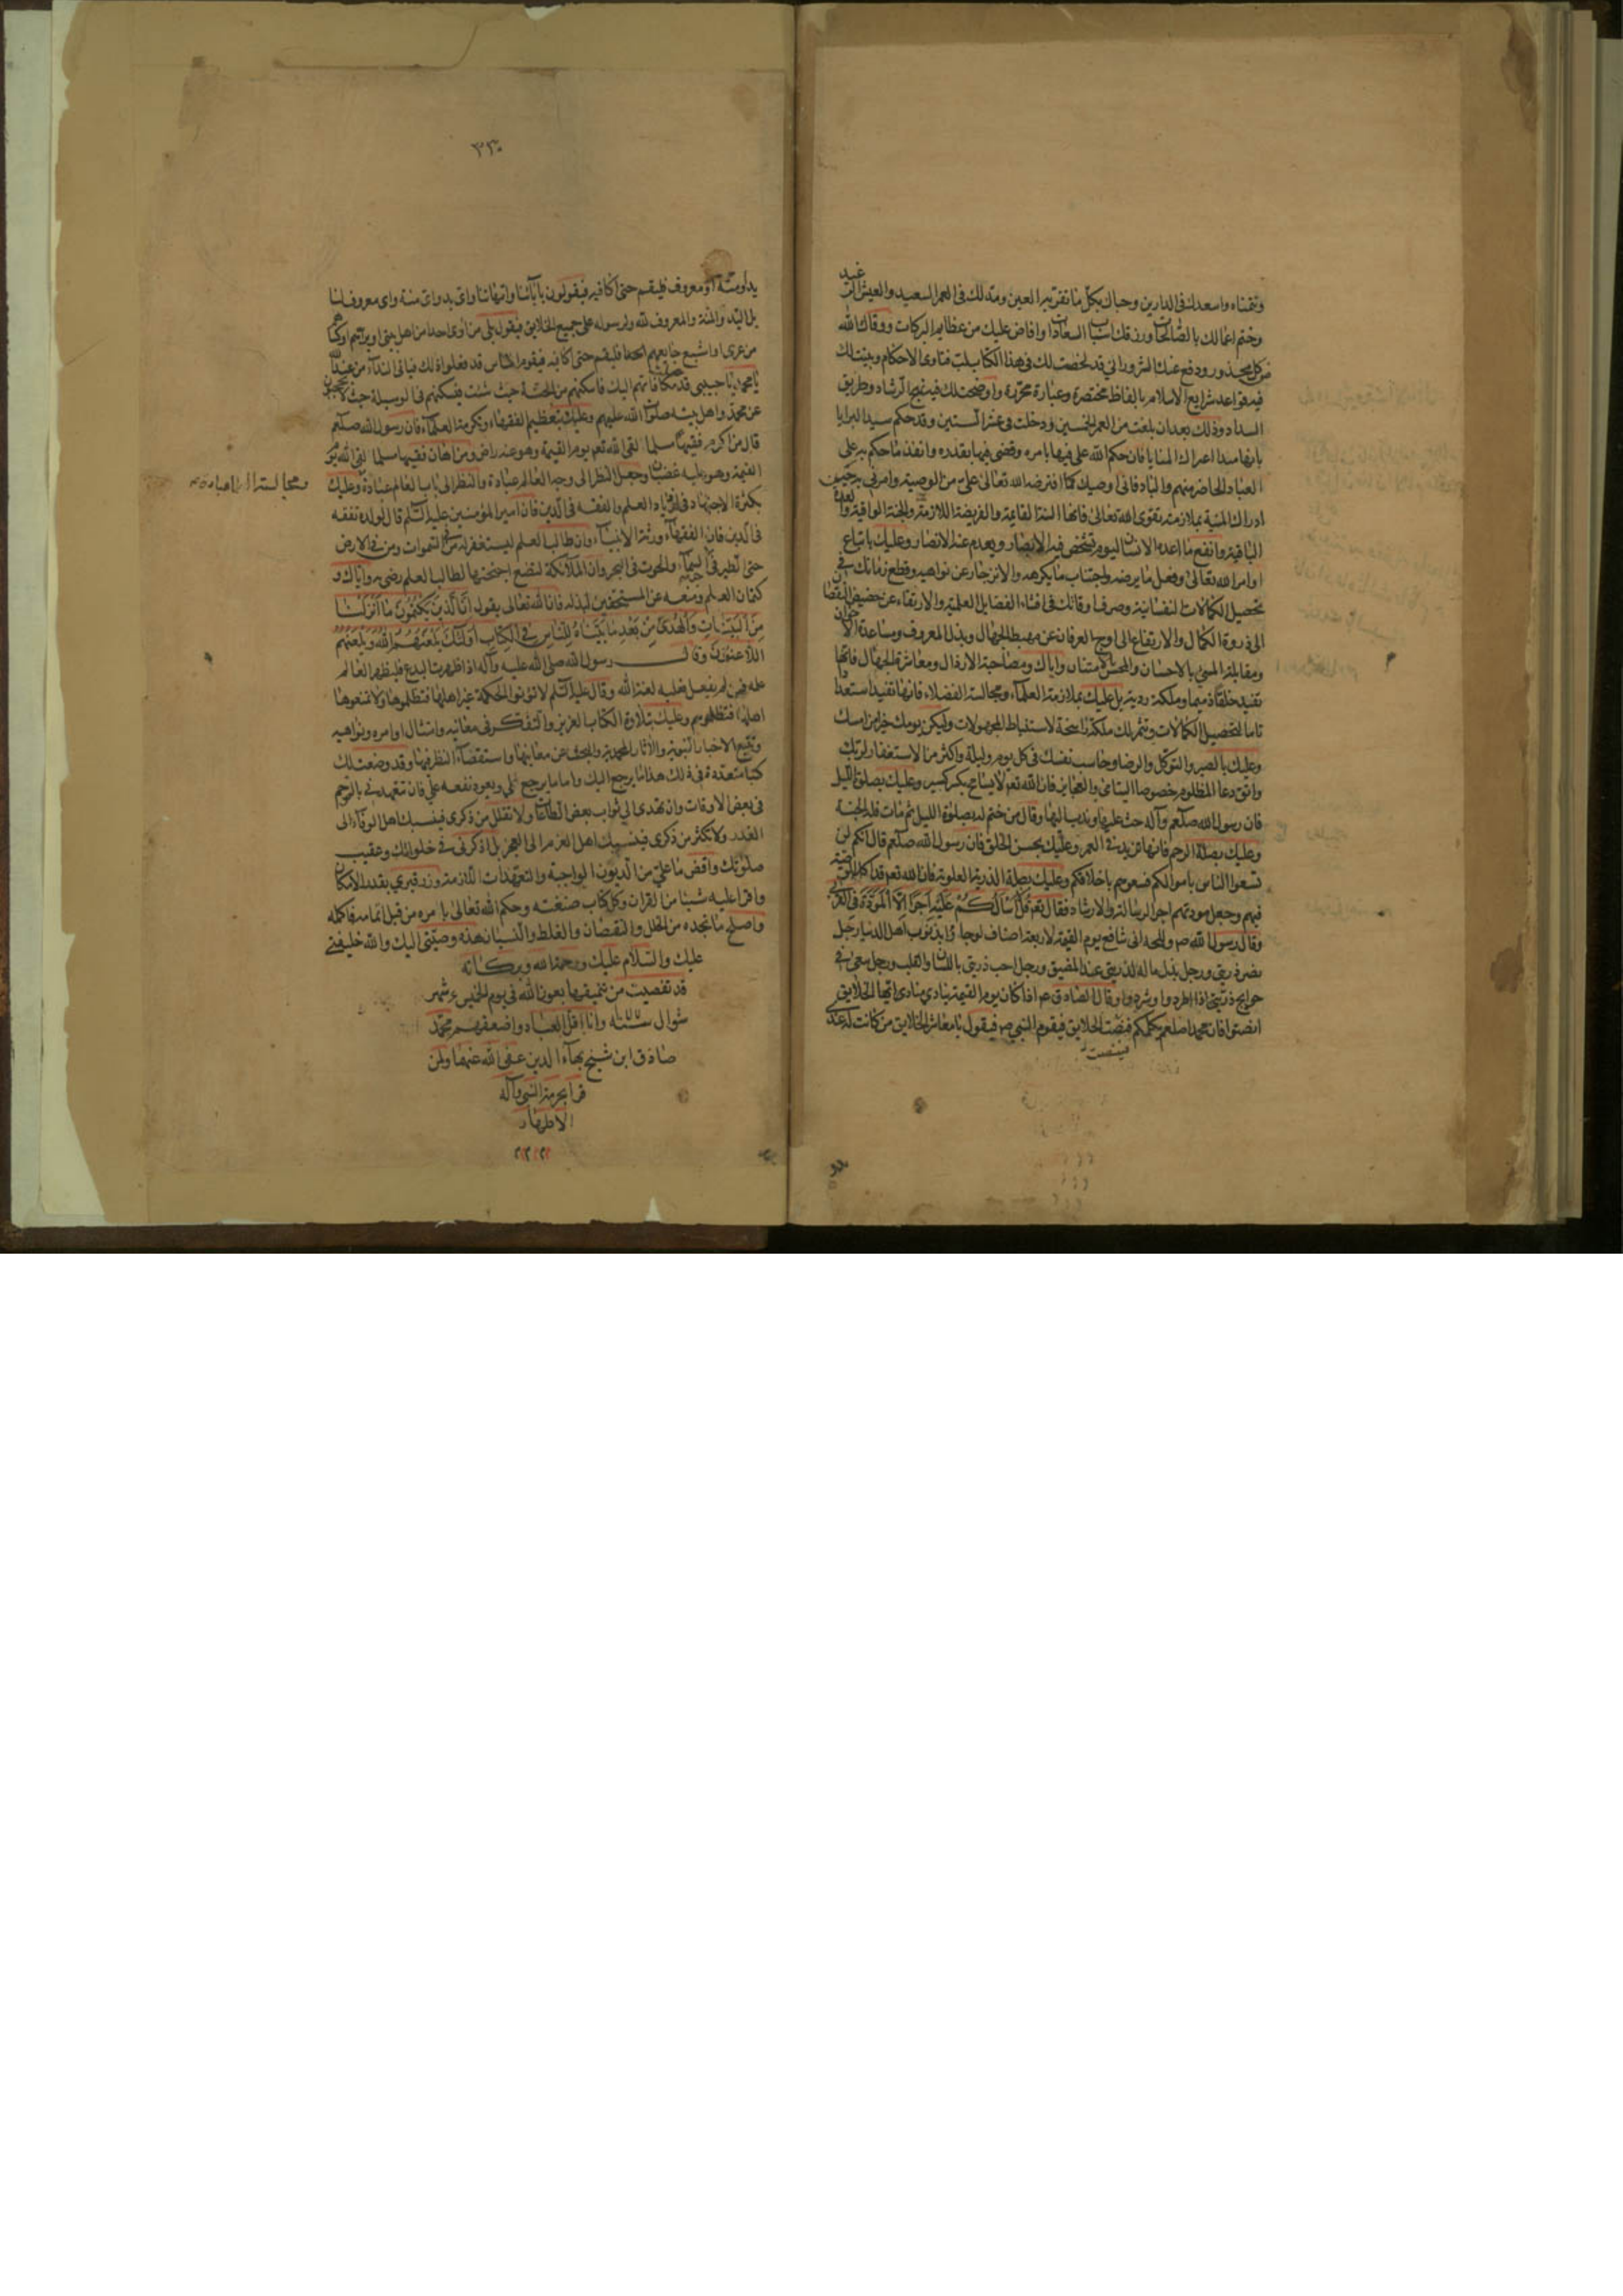 وتتمناه واسعدك في الدارين وحباك بكل ما تقر به العين ومد لك في العمر السعيد والعيش الرغيد
وختم اعمالك بالصالحات ورزقك اسباب السعادات وافاض عليك من عظايم البركات ووقاك الله
من كل محذور ودفع عنك الشرور اني قد لخصت لك في هذا الكتاب لب فتاوى الاحكام وبينت لك
فيه قواعد شرايع الاسلام بالفاظ مختصرة وعبارة محررة واوضحت لك فيه نهج الرشاد وطريق
السداد وذلك بعد ان بلغت من العمر الخمسين ودخلت في عشر الستين وقد حكم سيد البرايا
بانها مبدأ اعتراك المنايا فان حكم الله علي فيها بامره وقضى فيها بقدره وانفذ ما حكم به على
العباد الحاضر منهم والباد فاني اوصيك كما افترضه الله تعالى علي من الوصية وامرني به حين
ادراك المنية بملازمة تقوى الله تعالى فانها السنة القايمة والفريضة اللازمة والجنة الواقية والعدة
الباقية وانفع ما اعده الانسان ليوم تشخص فيه الابصار ويعدم عنه الانصار وعليك باتباع
اوامر الله تعالى وفعل ما يرضيه واجتناب ما يكرهه والانزجار عن نواهيه وقطع زمانك في
تحصيل الكمالات النفسانية وصرف اوقاتك في اقتناء الفضايل العلمية والارتقاء عن حضيض النقصان
الى ذروة الكمال والارتفاع الى اوج العرفان عن مهبط الجهال وبذل المعروف ومساعدة الاخوان
ومقابلة المسيئ بالاحسان والمحسن بالامتنان واياك ومصاحبة الارذال ومعاشرة الجهال فانها
تفيد خلقا ذميما وملكة ردية بل عليك بملازمة العلماء ومجالسة الفضلاء فانها تفيد استعدادا
تاما لتحصيل الكمالات وتثمر لك ملكة راسخة لاستنباط المجهولات وليكن يومك خيرا من امسك
وعليك بالصبر والتوكل والرضا وحاسب نفسك في كل يوم وليلة واكثر من الاستغفار لربك
واتق دعا المظلوم خصوصا اليتامى والعجايز فان الله تع لا يسامح بكسر كسير وعليك بصلوة الليل
فان رسول الله صلعم وآله حث عليها وندب اليها وقال من ختم له بصلوة الليل ثم مات فله الجنة
وعليك بصلة الرحم فانها تزيد في العمر وعليك بحسن الخلق فان رسول الله صلعم قال انكم لن
تسعوا الناس باموالكم فسعوهم باخلاقكم وعليك بصلة الذرية العلوية فان الله تع قد اكد الوصية
فيهم وجعل مودتهم اجر الرسالة والارشاد فقال تع قل لا اسالكم عليه اجرا الا المودة في القربى
وقال رسول الله ص اني شافع يوم القيمة لاربعة اصناف ولو جاؤا بذنوب اهل الدنيا رجل
نصر ذريتي ورجل بذل ماله لذريتي عند المضيق ورجل احب ذريتي باللسان والقلب ورجل سعى في
حوايج ذريتي اذا طردوا او شردوا وقال الصادق ع اذا كان يوم القيمة ينادي مناد ايها الخلايق
انصتوا فان محمدا صلعم يكلمكم فينصت الخلايق فيقوم النبي ص فيقول يا معاشر الخلايق من كانت له عندي
٣٣٠
يد او منة او معروف فليقم حتى اكافيه فيقولون بآبائنا وامهاتنا واي يد واي منة واي معروف لنا
بل اليد والمنة والمعروف لله ولرسوله على جميع الخلايق فيقول بلى من اوى احدا من اهل بيتي او برهم او كساهم
من عرى او اشبع جايعهم فليقم حتى اكافيه فيقوم اناس قد فعلوا ذلك فياتي النداء من عند الله
يا محمد يا حبيبي قد جعلت مكافاتهم اليك فاسكنهم من الجنة حيث شئت فيسكنهم في الوسيلة حيث لا يحجبون
عن محمد واهل بيته صلوات الله عليهم وعليك بتعظيم الفقهاء وتكرمة العلماء فان رسول الله صلعم
قال من اكرم فقيها مسلما لقى الله تع يوم القيمة وهو عنه راض ومن اهان فقيها مسلما لقى الله يوم
القيمة وهو عليه غضبان وجعل النظر الى وجه العالم عبادة والنظر الى باب العالم عبادة وعليك
ومجالسة العلماء عبادة
بكثرة الاجتهاد في ازدياد العلم والفقه في الدين فان امير المؤمنين عليه السلم قال لولده تفقه
في الدين فان الفقهاء ورثة الانبياء وان طالب العلم ليستغفر له من في السموات ومن في الارض
حتى الطير في السماء والحوت في البحر وان الملائكة لتضع اجنحتها لطالب العلم رضى به واياك و
كتمان العلم ومنعه عن المستحقين لبذله فان الله تعالى يقول ان الذين يكتمون ما انزلنا
من البينات والهدى من بعد ما بيناه للناس في الكتاب اولئك يلعنهم الله ويلعنهم
اللاعنون وقال رسول الله صلى الله عليه وآله اذا ظهرت البدع فليظهر العالم
علمه فمن لم يفعل فعليه لعنة الله وقال عليه السلم لا تؤتوا الحكمة غير اهلها فتظلموها ولا تمنعوها
اهلها فتظلموهم وعليك بتلاوة الكتاب العزيز والتفكر في معانيه وامتثال اوامره ونواهيه
وتتبع الاخبار النبوية والآثار المحمدية والبحث عن معانيها واستقصاء النظر فيها وقد وضعت لك
كتبا متعددة في ذلك هذا ما يرجع اليك واما ما يرجع الي ويعود نفعه علي فان تتعهدني بالترحم
في بعض الاوقات وان تهدي الي ثواب بعض الطاعات ولا تقلل من ذكري فينسبك اهل الوفاء الى
الغدر ولا تكثر من ذكري فينسبك اهل العزم الى العجز بل اذكرني في خلواتك وعقيب
صلوتك واقض ما علي من الديون الواجبة والتعهدات اللازمة وزر قبري بقدر الامكان
واقرا عليه شيئا من القران وكل كتاب صنفته وحكم الله تعالى بامره من قبل اتمامه فاكمله
واصلح ما تجده من الخلل والنقصان والغلط والنسيان هذه وصيتي اليك والله خليفتي
عليك والسلام عليك ورحمة الله وبركاته
قد تفصيت من تنميقها بعون الله في يوم الخميس شهر
شوال وانا اقل العباد واضعفهم محمد
صادق ابن شيخ بهاء الدين عفى الله عنهما ولمن
قرأ بحرمة النبي وآله
الاطهار